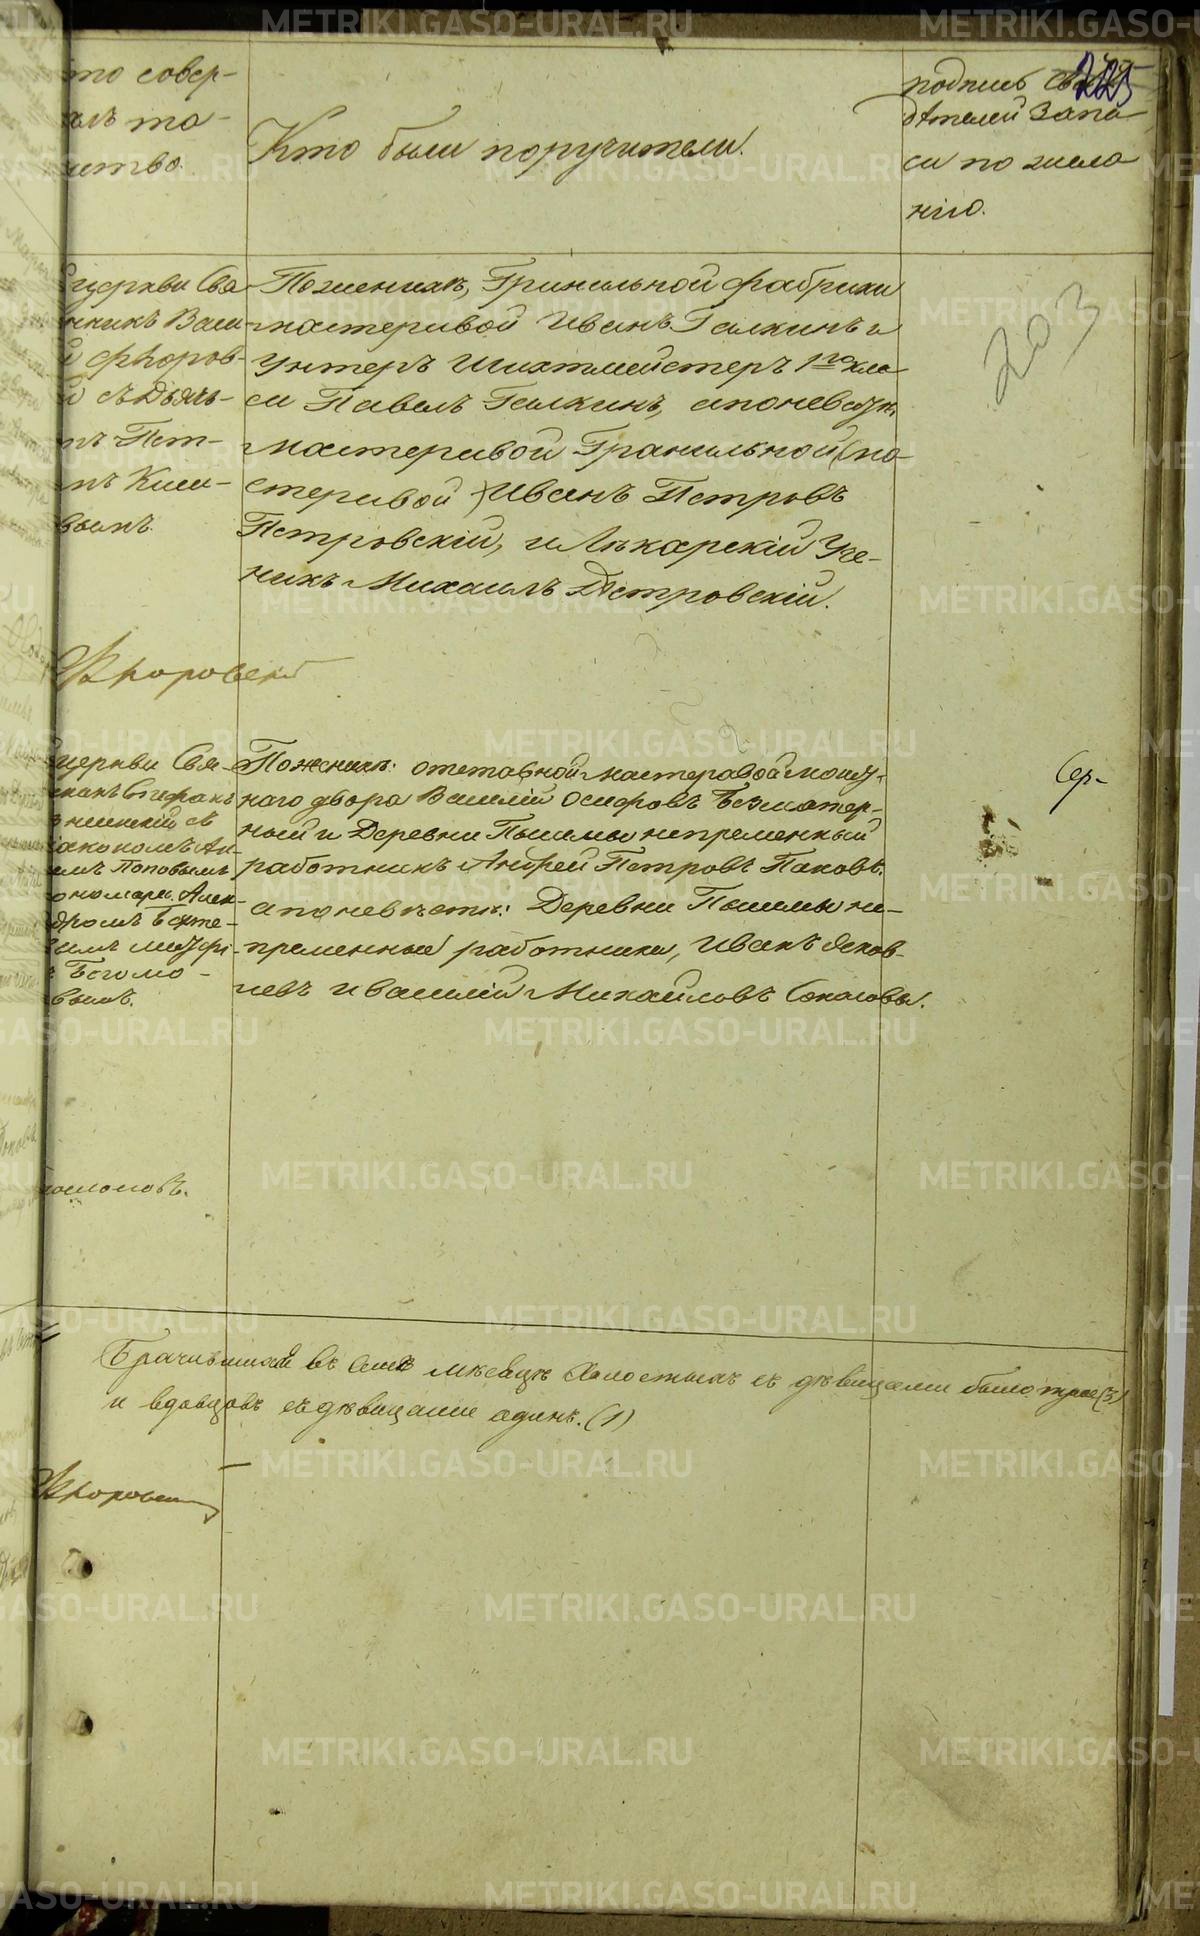 то совер-
илъ та-
инство.
Кто были поручители.
подпись сви
дѣтелей запи
си по жела
нію.
225
203
церкви Свя
нникъ Васи
й Фіоров-
й съ Дьяч-
въимъ.
По женихѣ, Гранильной фабрики
мастеровой Иванъ Галкинъ и
Унтеръ Шихтмейстеръ 1го кла-
са Павелъ Галкинъ, а по невѣстѣ
мастеровой Гранильной (ма-
стеровой) Иванъ Петровъ
Петровскій, и Лѣкарскій Уче-
никъ Михаилъ Петровскій.
церкви Свя-
нскій съ
іакономъ Ан-
омъ Поповымъ
ономаремъ Алек-
Богомо-
вымъ.
По женихѣ: отставной мастеровой монет-
наго двора Василій Осиповъ Безматер-
ный и Деревни Пышмы непременный
работникъ Андрей Петровъ Пановъ.
а по невѣстѣ: Деревни Пышмы не-
пременные работники, Иванъ Яков-
левъ и Василій Михайловъ Соколовы.
Сер-
оломоновъ.
Брачившихся въ семъ мѣсяцѣ холостыхъ съ дѣвицами было трое (3)
и вдовцовъ съ дѣвицами одинъ. (1)
METRIKI.GASO-URAL.RU